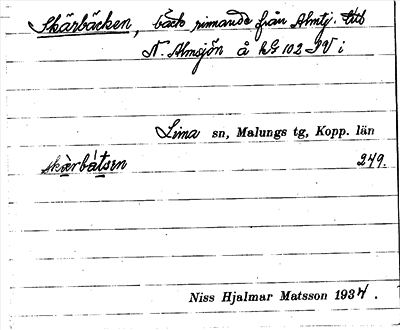 Skärbäcken, bäck rinnande från Almtj. till
N. Almsjön å kG 102 IV i
Lima sn, Malungs tg, Kopp. län
skærbátsen 249.
Niss Hjalmar Matsson 1937.